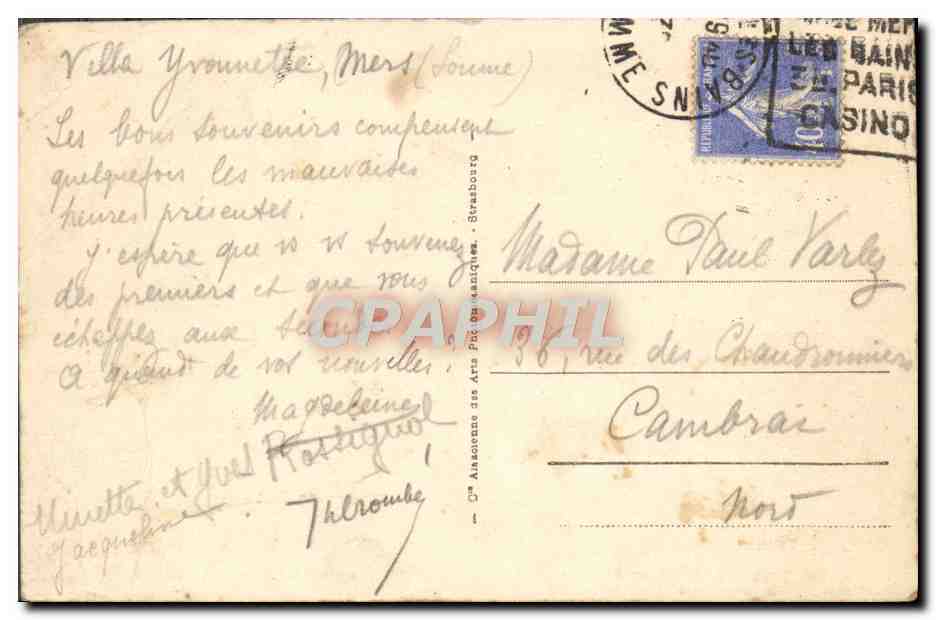 Villa Yvonnette, Mers (Somme)
Les bons souvenirs compensent
quelquefois les mauvaises
heures présentes.
J'espère que vs vs souvenez
des premiers et que vous
échappez aux secondes
A quand de vos nouvelles ?
Magdeleine
Rossignol
Minette et Yves
Jacqueline
Cie Alsacienne des Arts Photomécaniques. - Strasbourg
MME
S-BAINS
MER
LES BAINS
DE PARIS
CASINO
REPUBLIQUE FRANÇAISE
40
Madame Paul Varlez
36, rue des Chaudronniers
Cambrai
Nord
CPAPHIL